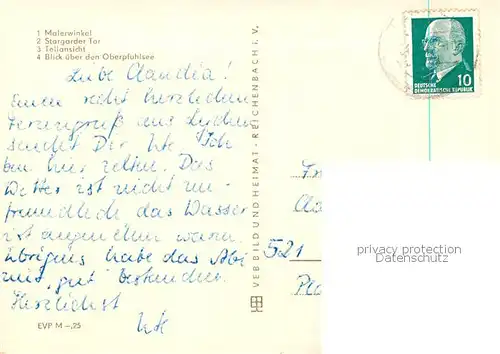 1 Malerwinkel
2 Stargarder Tor
3 Teilansicht
4 Blick über den Oberpfuhlsee
Liebe Claudia!
Einen recht herzlichen
Feriengruß aus Lychen
sendet Dir Ute. Ich
bin hier zelten. Das
Wetter ist nicht un-
freundlich das Wasser
ist angenehm warm.
Übrigens habe das Abi
mit „gut" bestanden.
Herzlichst
Ute
EVP M –,25
VEB BILD UND HEIMAT · REICHENBACH i. V.
10
DEUTSCHE
DEMOKRATISCHE REPUBLIK
Fr
521
privacy protection
Datenschutz